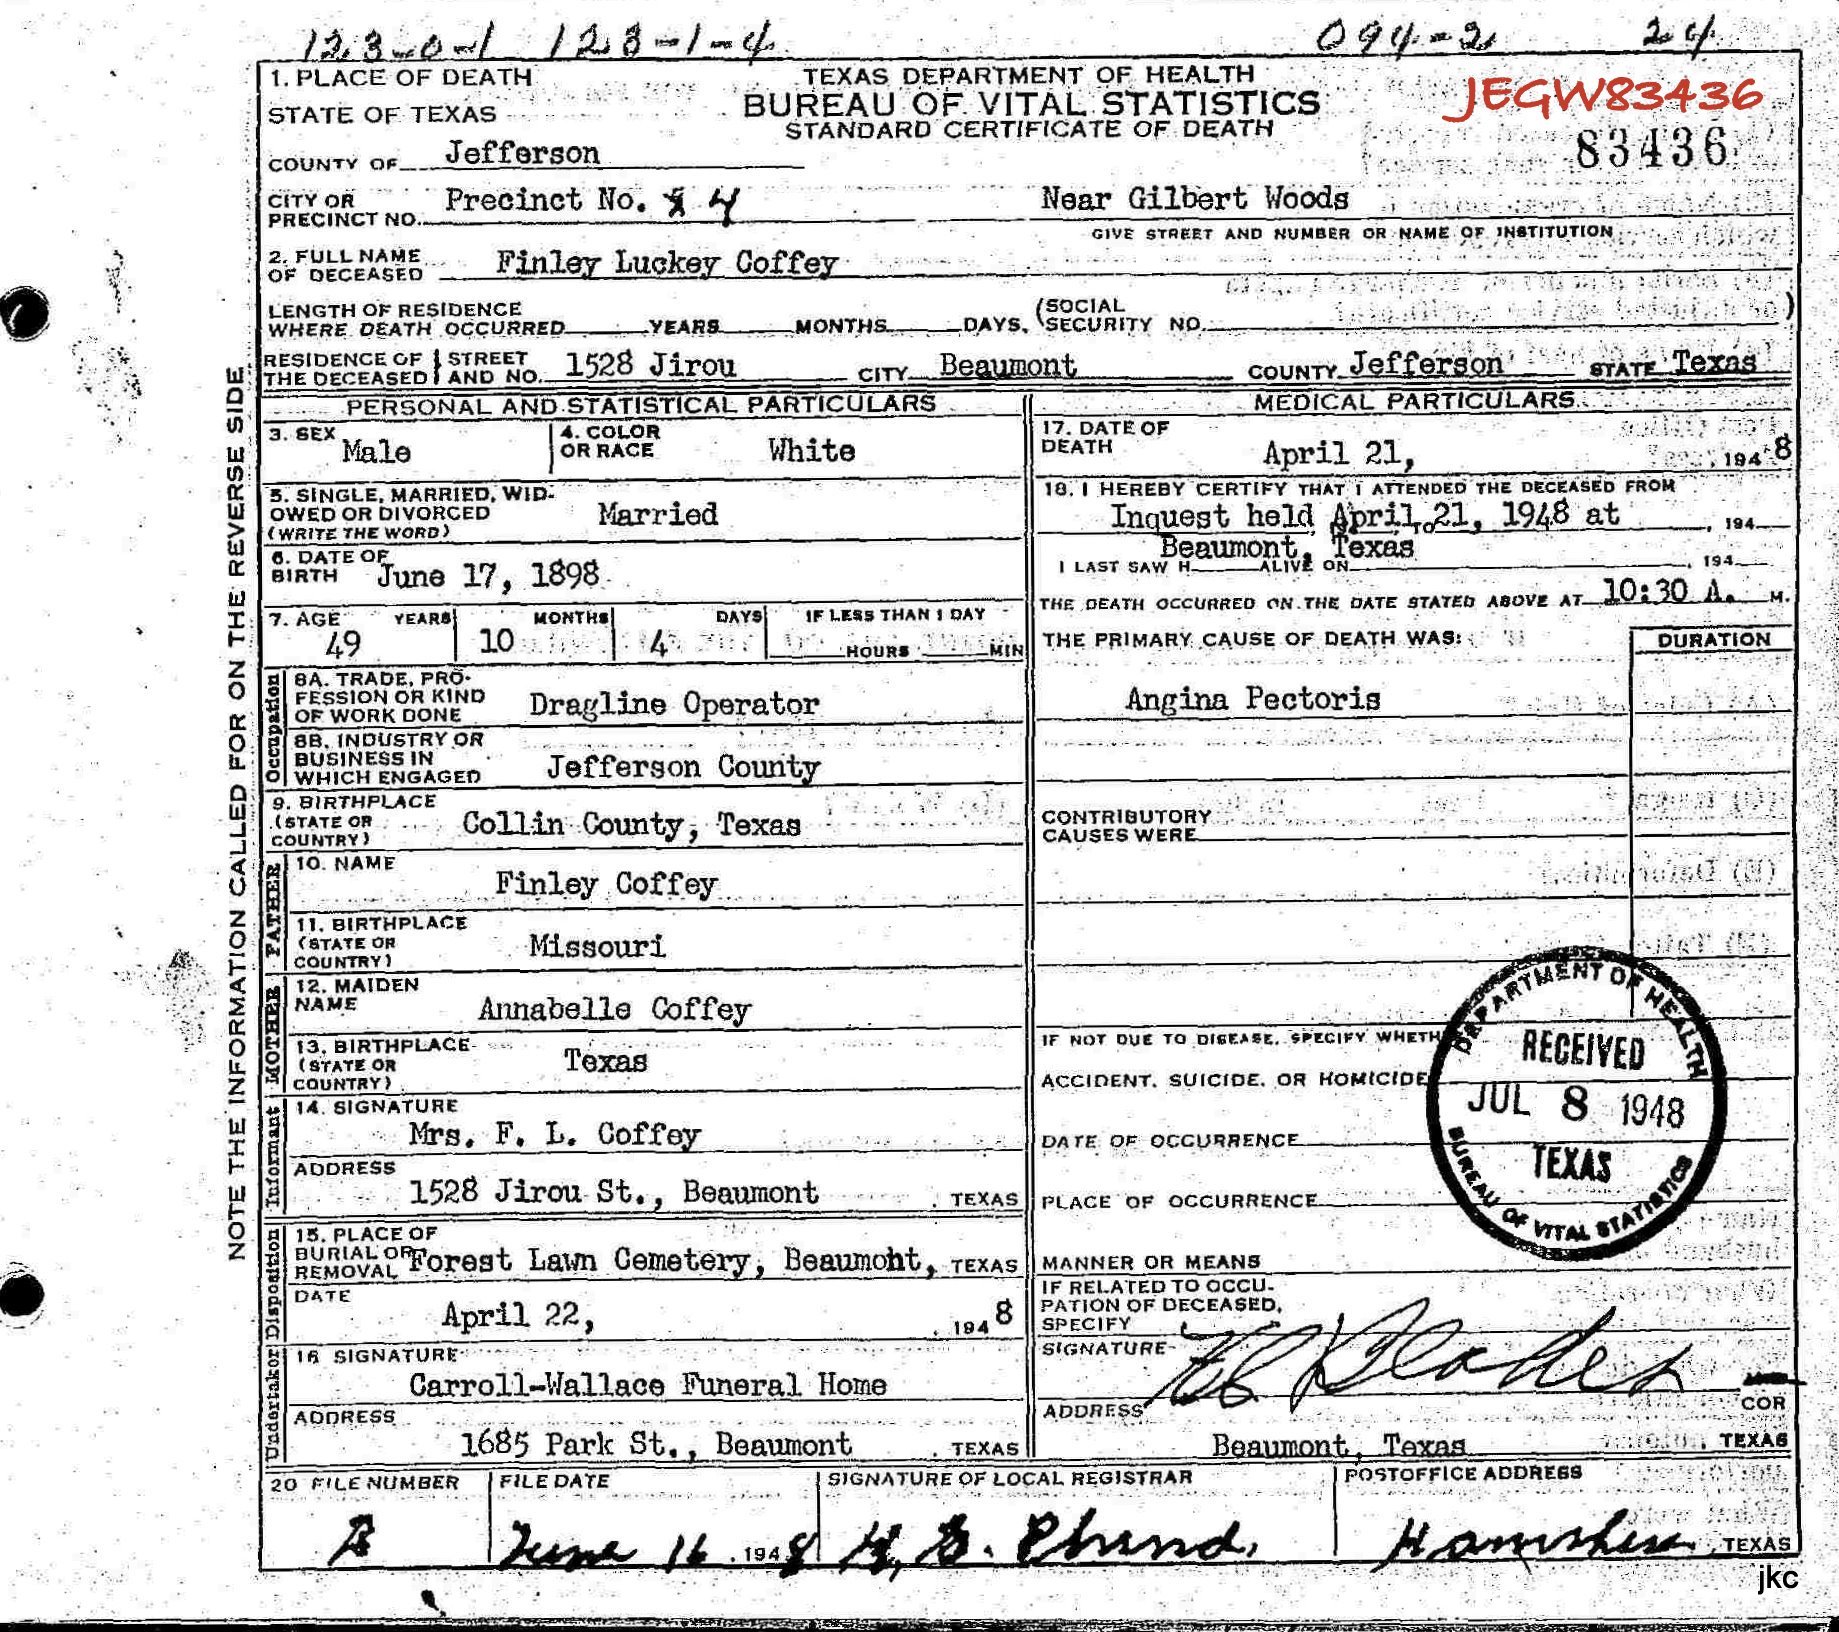 123-0-1 123-1-4 094-2 24
1. PLACE OF DEATH
STATE OF TEXAS
TEXAS DEPARTMENT OF HEALTH
BUREAU OF VITAL STATISTICS
STANDARD CERTIFICATE OF DEATH
JEGW83436
83436
COUNTY OF Jefferson
CITY OR PRECINCT NO. Precinct No. 4 Near Gilbert Woods
GIVE STREET AND NUMBER OR NAME OF INSTITUTION
2. FULL NAME OF DECEASED Finley Luckey Coffey
LENGTH OF RESIDENCE WHERE DEATH OCCURRED YEARS MONTHS DAYS. (SOCIAL SECURITY NO. )
RESIDENCE OF THE DECEASED STREET AND NO. 1528 Jirou CITY Beaumont COUNTY Jefferson STATE Texas
PERSONAL AND STATISTICAL PARTICULARS
3. SEX Male 4. COLOR OR RACE White
5. SINGLE, MARRIED, WIDOWED OR DIVORCED (WRITE THE WORD) Married
6. DATE OF BIRTH June 17, 1898
7. AGE YEARS MONTHS DAYS IF LESS THAN 1 DAY
49 10 4 HOURS MIN
Occupation
8A. TRADE, PROFESSION OR KIND OF WORK DONE Dragline Operator
8B. INDUSTRY OR BUSINESS IN WHICH ENGAGED Jefferson County
9. BIRTHPLACE (STATE OR COUNTRY) Collin County, Texas
FATHER
10. NAME Finley Coffey
11. BIRTHPLACE (STATE OR COUNTRY) Missouri
MOTHER
12. MAIDEN NAME Annabelle Coffey
13. BIRTHPLACE (STATE OR COUNTRY) Texas
Informant
14. SIGNATURE Mrs. F. L. Coffey
ADDRESS 1528 Jirou St., Beaumont , TEXAS
Disposition
15. PLACE OF BURIAL OR REMOVAL Forest Lawn Cemetery, Beaumont, TEXAS
DATE April 22, , 1948
Undertaker
16 SIGNATURE Carroll-Wallace Funeral Home
ADDRESS 1685 Park St., Beaumont , TEXAS
MEDICAL PARTICULARS
17. DATE OF DEATH April 21, , 1948
18. I HEREBY CERTIFY THAT I ATTENDED THE DECEASED FROM
Inquest held April 21, 1948 at TO , 194
Beaumont, Texas
I LAST SAW H ALIVE ON , 194
THE DEATH OCCURRED ON THE DATE STATED ABOVE AT 10:30 A. M.
THE PRIMARY CAUSE OF DEATH WAS: DURATION
Angina Pectoris
CONTRIBUTORY CAUSES WERE
IF NOT DUE TO DISEASE, SPECIFY WHETH
ACCIDENT, SUICIDE, OR HOMICIDE
DATE OF OCCURRENCE
PLACE OF OCCURRENCE
MANNER OR MEANS
IF RELATED TO OCCUPATION OF DECEASED, SPECIFY
DEPARTMENT OF HEALTH
RECEIVED
JUL 8 1948
TEXAS
BUREAU OF VITAL STATISTICS
SIGNATURE
COR
ADDRESS Beaumont, Texas , TEXAS
20 FILE NUMBER FILE DATE SIGNATURE OF LOCAL REGISTRAR POSTOFFICE ADDRESS
June 16, 1948 , TEXAS
jkc
NOTE THE INFORMATION CALLED FOR ON THE REVERSE SIDE